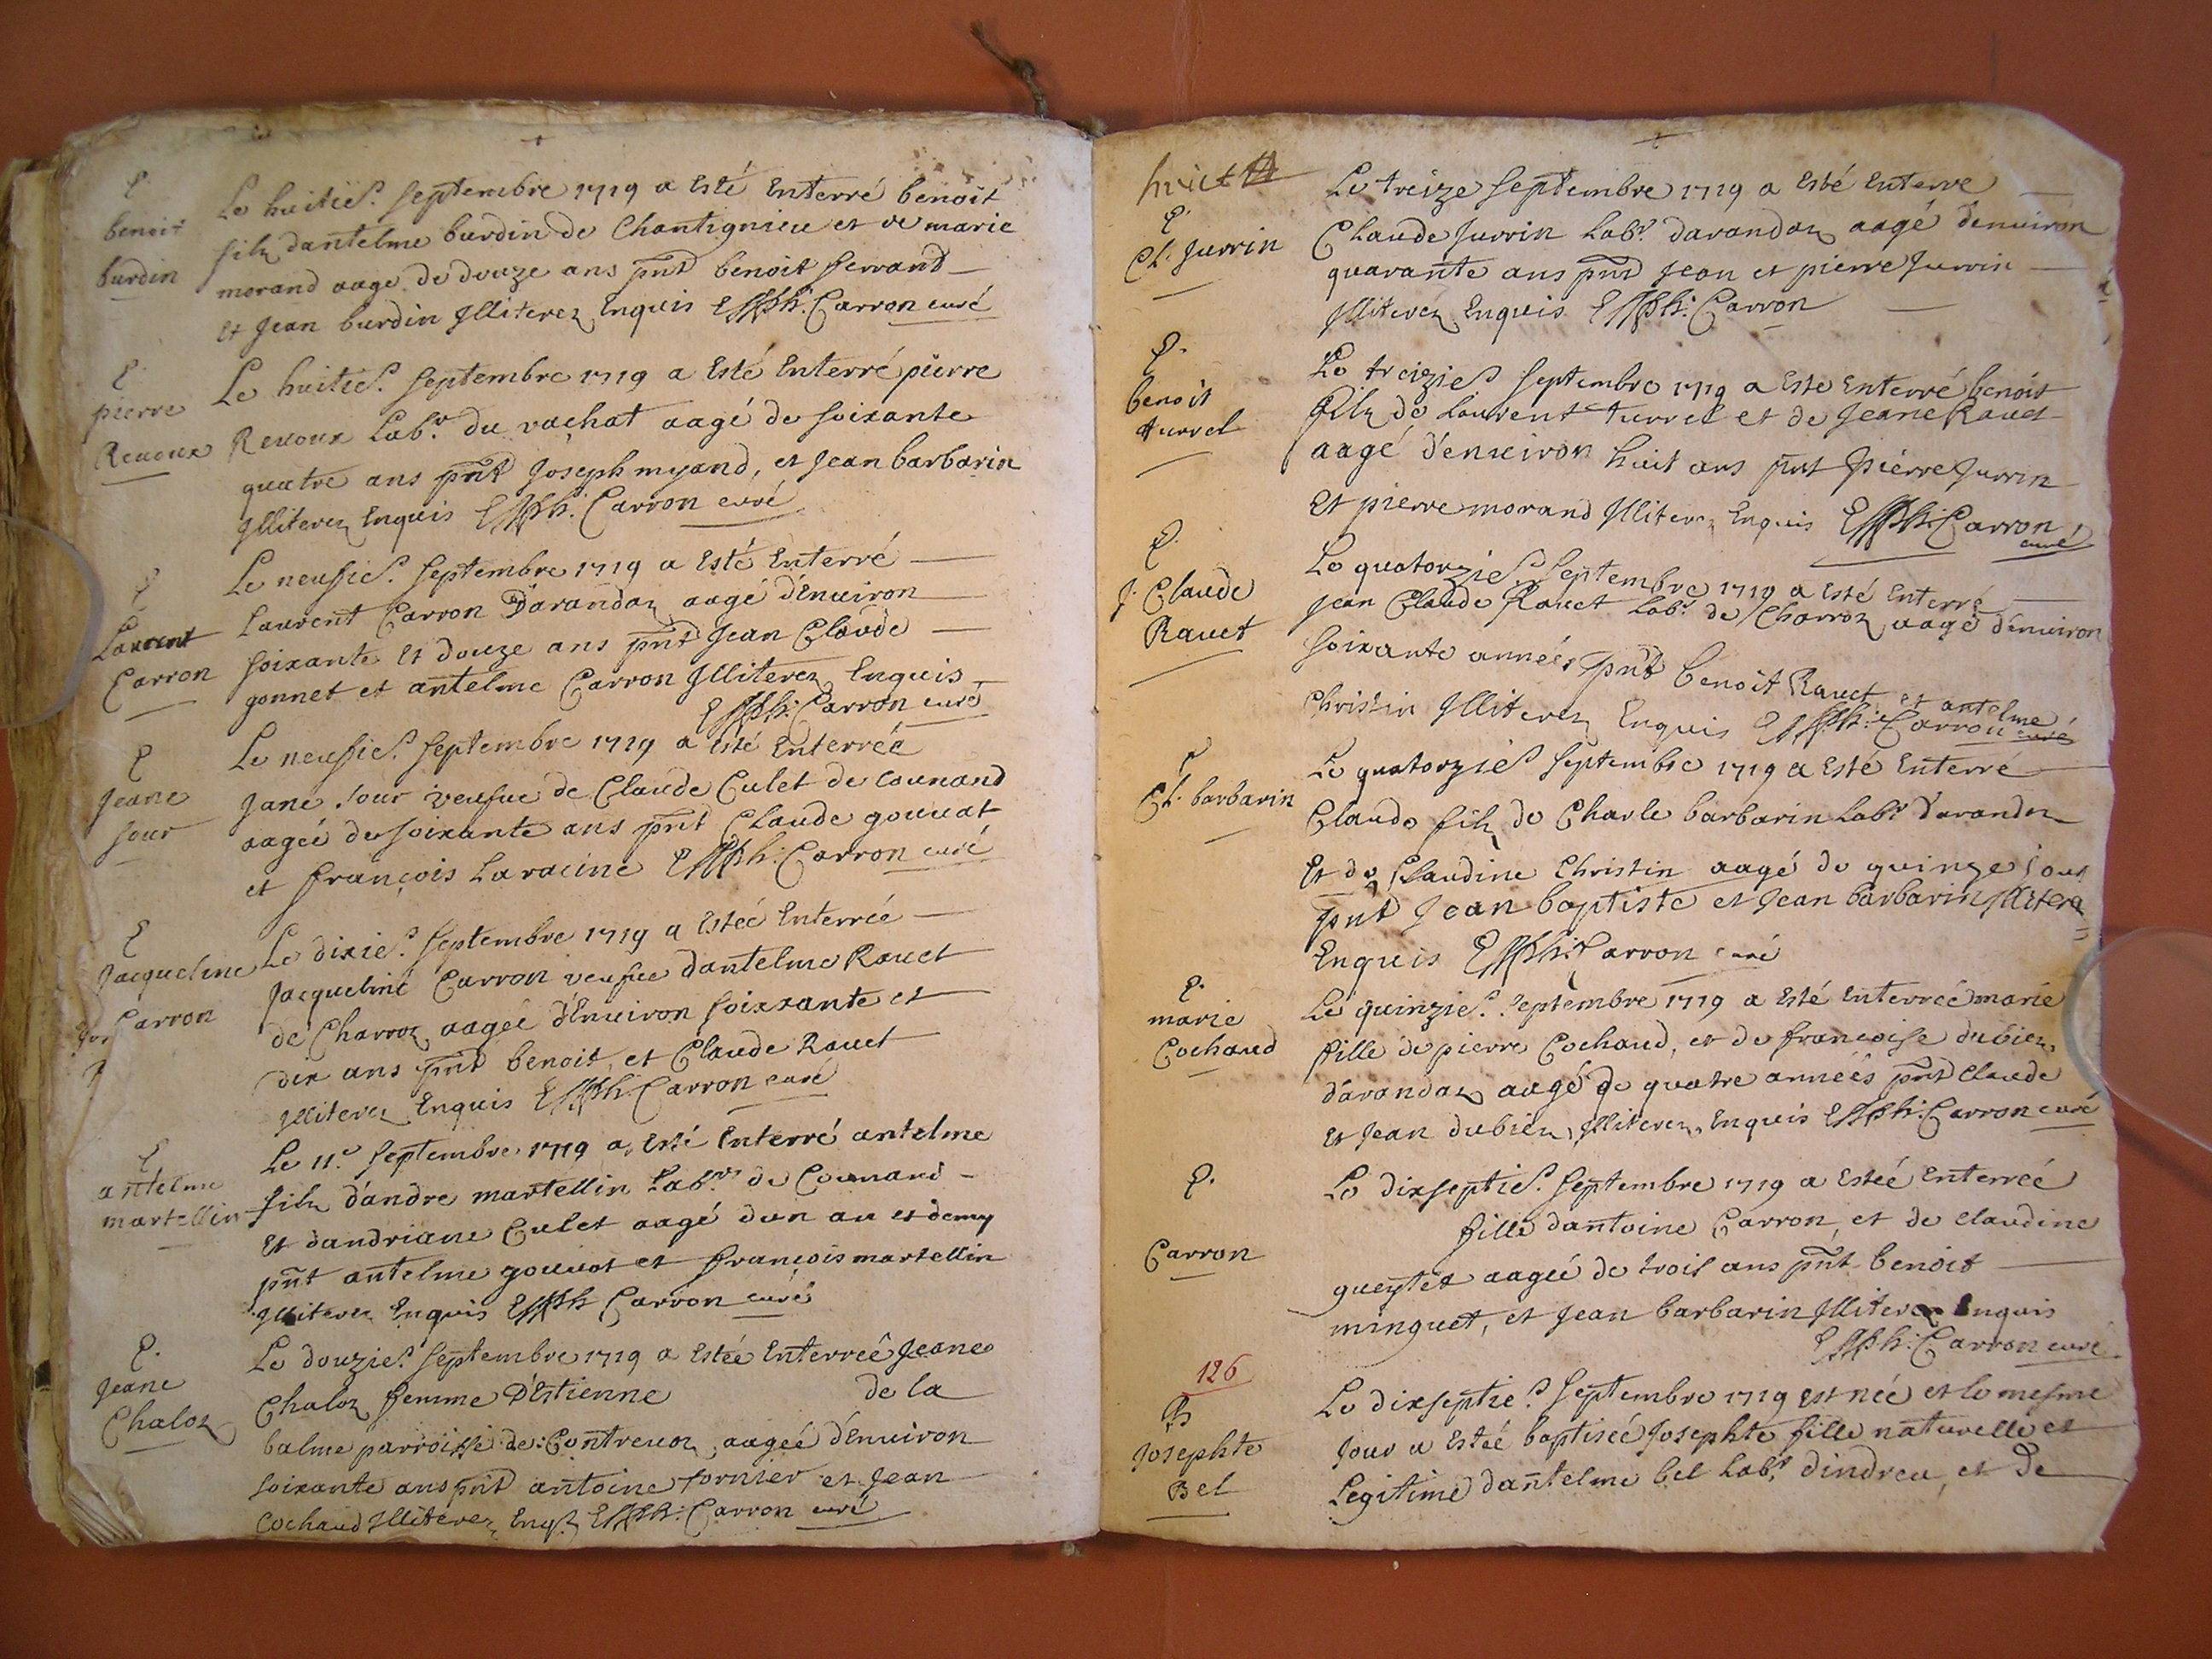 E.
benoit
burdin
Le huitie. septembre 1719 a Esté Enterré benoit
filz dantelme burdin de Chantignieu et de marie
morand aagé de douze ans pnt benoit ferrand
Et Jean burdin Jlliterez Enquis Carron curé
E.
pierre
Reuoux
Le huitie. septembre 1719 a Esté Enterré pierre
Reuoux Labr. du vachat aagé de soixante
quatre ans pnt Joseph myand, et Jean barbarin
Jlliterez Enquis Carron curé
E
Laurent
Carron
Le neufie. septembre 1719 a Esté Enterré
Laurent Carron D'arandaz aagé d'Enuiron
soixante Et douze ans pnt Jean Claude
gonnet et antelme Carron Jlliterez Enquis
Carron curé
E
Jeane
sour
Le neufie. septembre 1719 a Esté Enterréé
Jane sour veufue de Claude Culet de Counand
aagéé de soixante ans pnt Claude gouuat
et françois Laracine Carron curé
E
Jacqueline
Carron
Le dixie. septembre 1719 a Estéé Enterréé
Jacqueline Carron veufue dantelme Rauet
de Charroz aagéé d'Enuiron soixxante et
dix ans pnt benoit, et Claude Rauet
Jlliterez Enquis Carron curé
E
antelme
martellin
Le 11e. septembre 1719 a Esté Enterré antelme
filz d'andre martellin Labr. de Counand
Et dandriane Culet aagé dun an et demy
pnt antelme gouuat et françois martellin
Jlliterez Enquis Carron curé
E.
Jeane
Chaloz
Le douzie. septembre 1719 a Estéé Enterréé Jeane
Chaloz femme D'Estienne de la
balme parroisse de Contreuoz, aagéé d'Enuiron
soixante ans pnt antoine fornier et Jean
Cochaud Jlliterez Enqz Carron curé
huict
E.
Cl. Jurrin
Le treize septembre 1719 a Esté Enterré
Claude Jurrin Labr. darandaz aagé denuiron
quarante ans pnt Jean et pierre Jurrin
Jlliterez Enquis Carron
E.
benoit
turrel
Le treizie septembre 1719 a Esté Enterré benoit
filz de Laurent turrel et de Jeane Rauet
aagé d'enuiron huit ans pnt pierre Jurrin
Et pierre morand Jlliterez Enquis Carron
curé
E.
J. Claude
Rauet
Le quatorzie. septembre 1719 a Esté Enterré
Jean Claude Rauet Labr. de Charroz aagé d'enuiron
soixante années pnt benoit Rauet et antelme
Christin Jlliterez Enquis Carron curé
E
Cl. barbarin
Le quatorzie septembre 1719 a Esté Enterré
Claude filz de Charle barbarin Labr darandaz
Et de Claudine Christin aagé de quinze jour
pnt Jean baptiste et Jean barbarin Jllitera
Enquis Carron curé
E.
marie
Cochaud
Le quinzie. septembre 1719 a Esté Enterréé marie
fille de pierre Cochaud, et de françoise dubiez
d'arandaz aagé de quatre annéés pnt Claude
Et Jean dubiez, Jlliterez, Enquis Carron curé
E.
Carron
Le dixseptie. septembre 1719 a Estéé Enterréé
fille dantoine Carron, et de claudine
gueytet aagéé de trois ans pnt benoit
minguet, et Jean barbarin Jlliterez Enquis
Carron curé
126
B
Josephte
Bel
Le dixseptie. septembre 1719 est néé et le mesme
Jour a Estéé baptiséé Josephte fille naturelle et
Legitime dantelme bel Labr. dindreu, et de